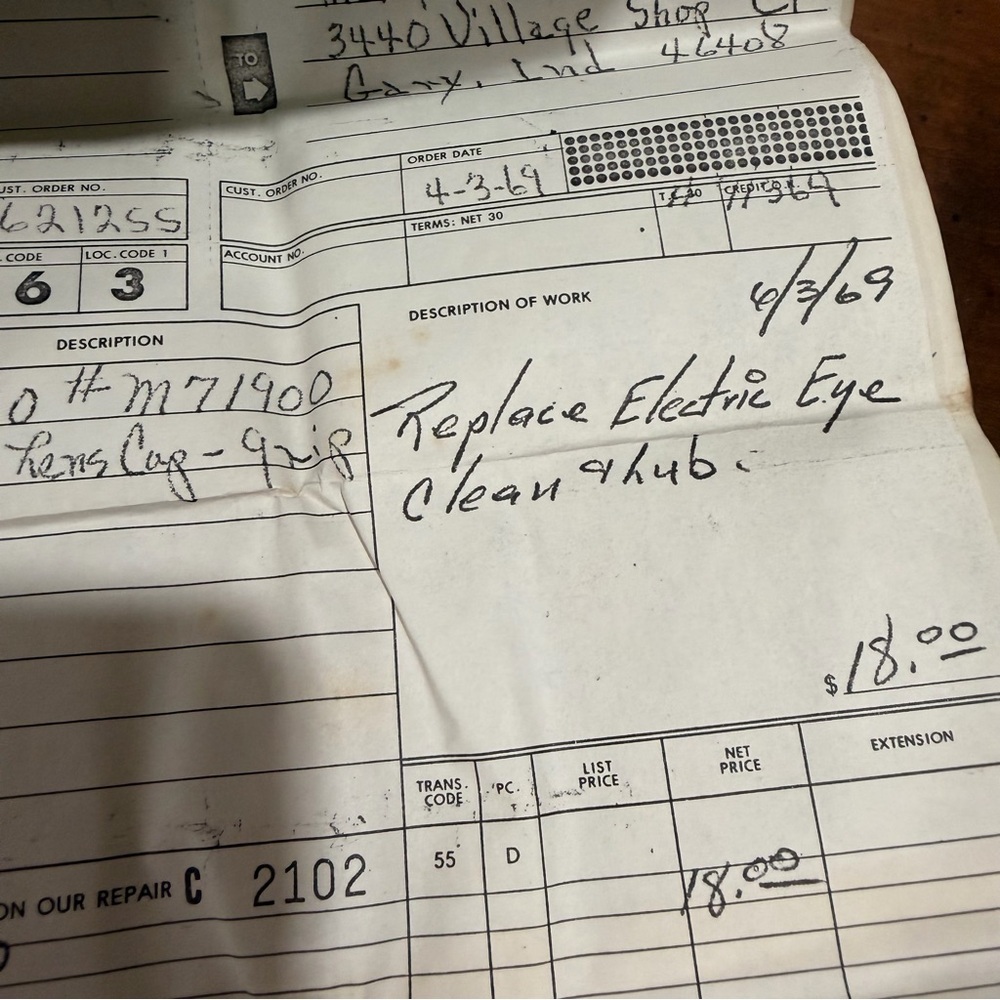 Shop
3440 Village
Gary, Ind 46408
TO
CUST. ORDER NO.
ORDER DATE
4-3-69
UST. ORDER NO.
621255
TERMS: NET 30
CREDIT O.K.
CODE
LOC. CODE 1
ACCOUNT NO.
6
3
DESCRIPTION OF WORK
6/3/69
DESCRIPTION
O # M71900
Lens Cap - grip
Replace Electric Eye
Clean & lub.
$ 18.00
TRANS. CODE
PC.
LIST PRICE
NET PRICE
EXTENSION
55
D
18.00
ON OUR REPAIR C 2102